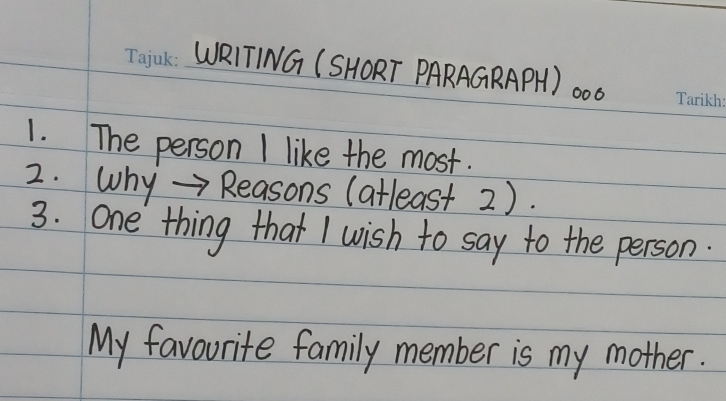 Tajuk: WRITING (SHORT PARAGRAPH) ooo
Tarikh:
1. The person I like the most.
2. Why → Reasons (atleast 2).
3. One thing that I wish to say to the person.
My favourite family member is my mother.